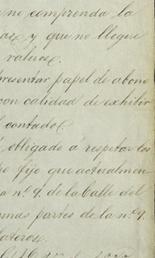 y no comprenda la
y que no llegue
valores
presentar papel de abono
con calidad de exhibir
contado
obligado a respetar los
fijo que actualmen
a nº 9. de la Calle del
mas partes de la nº 9.